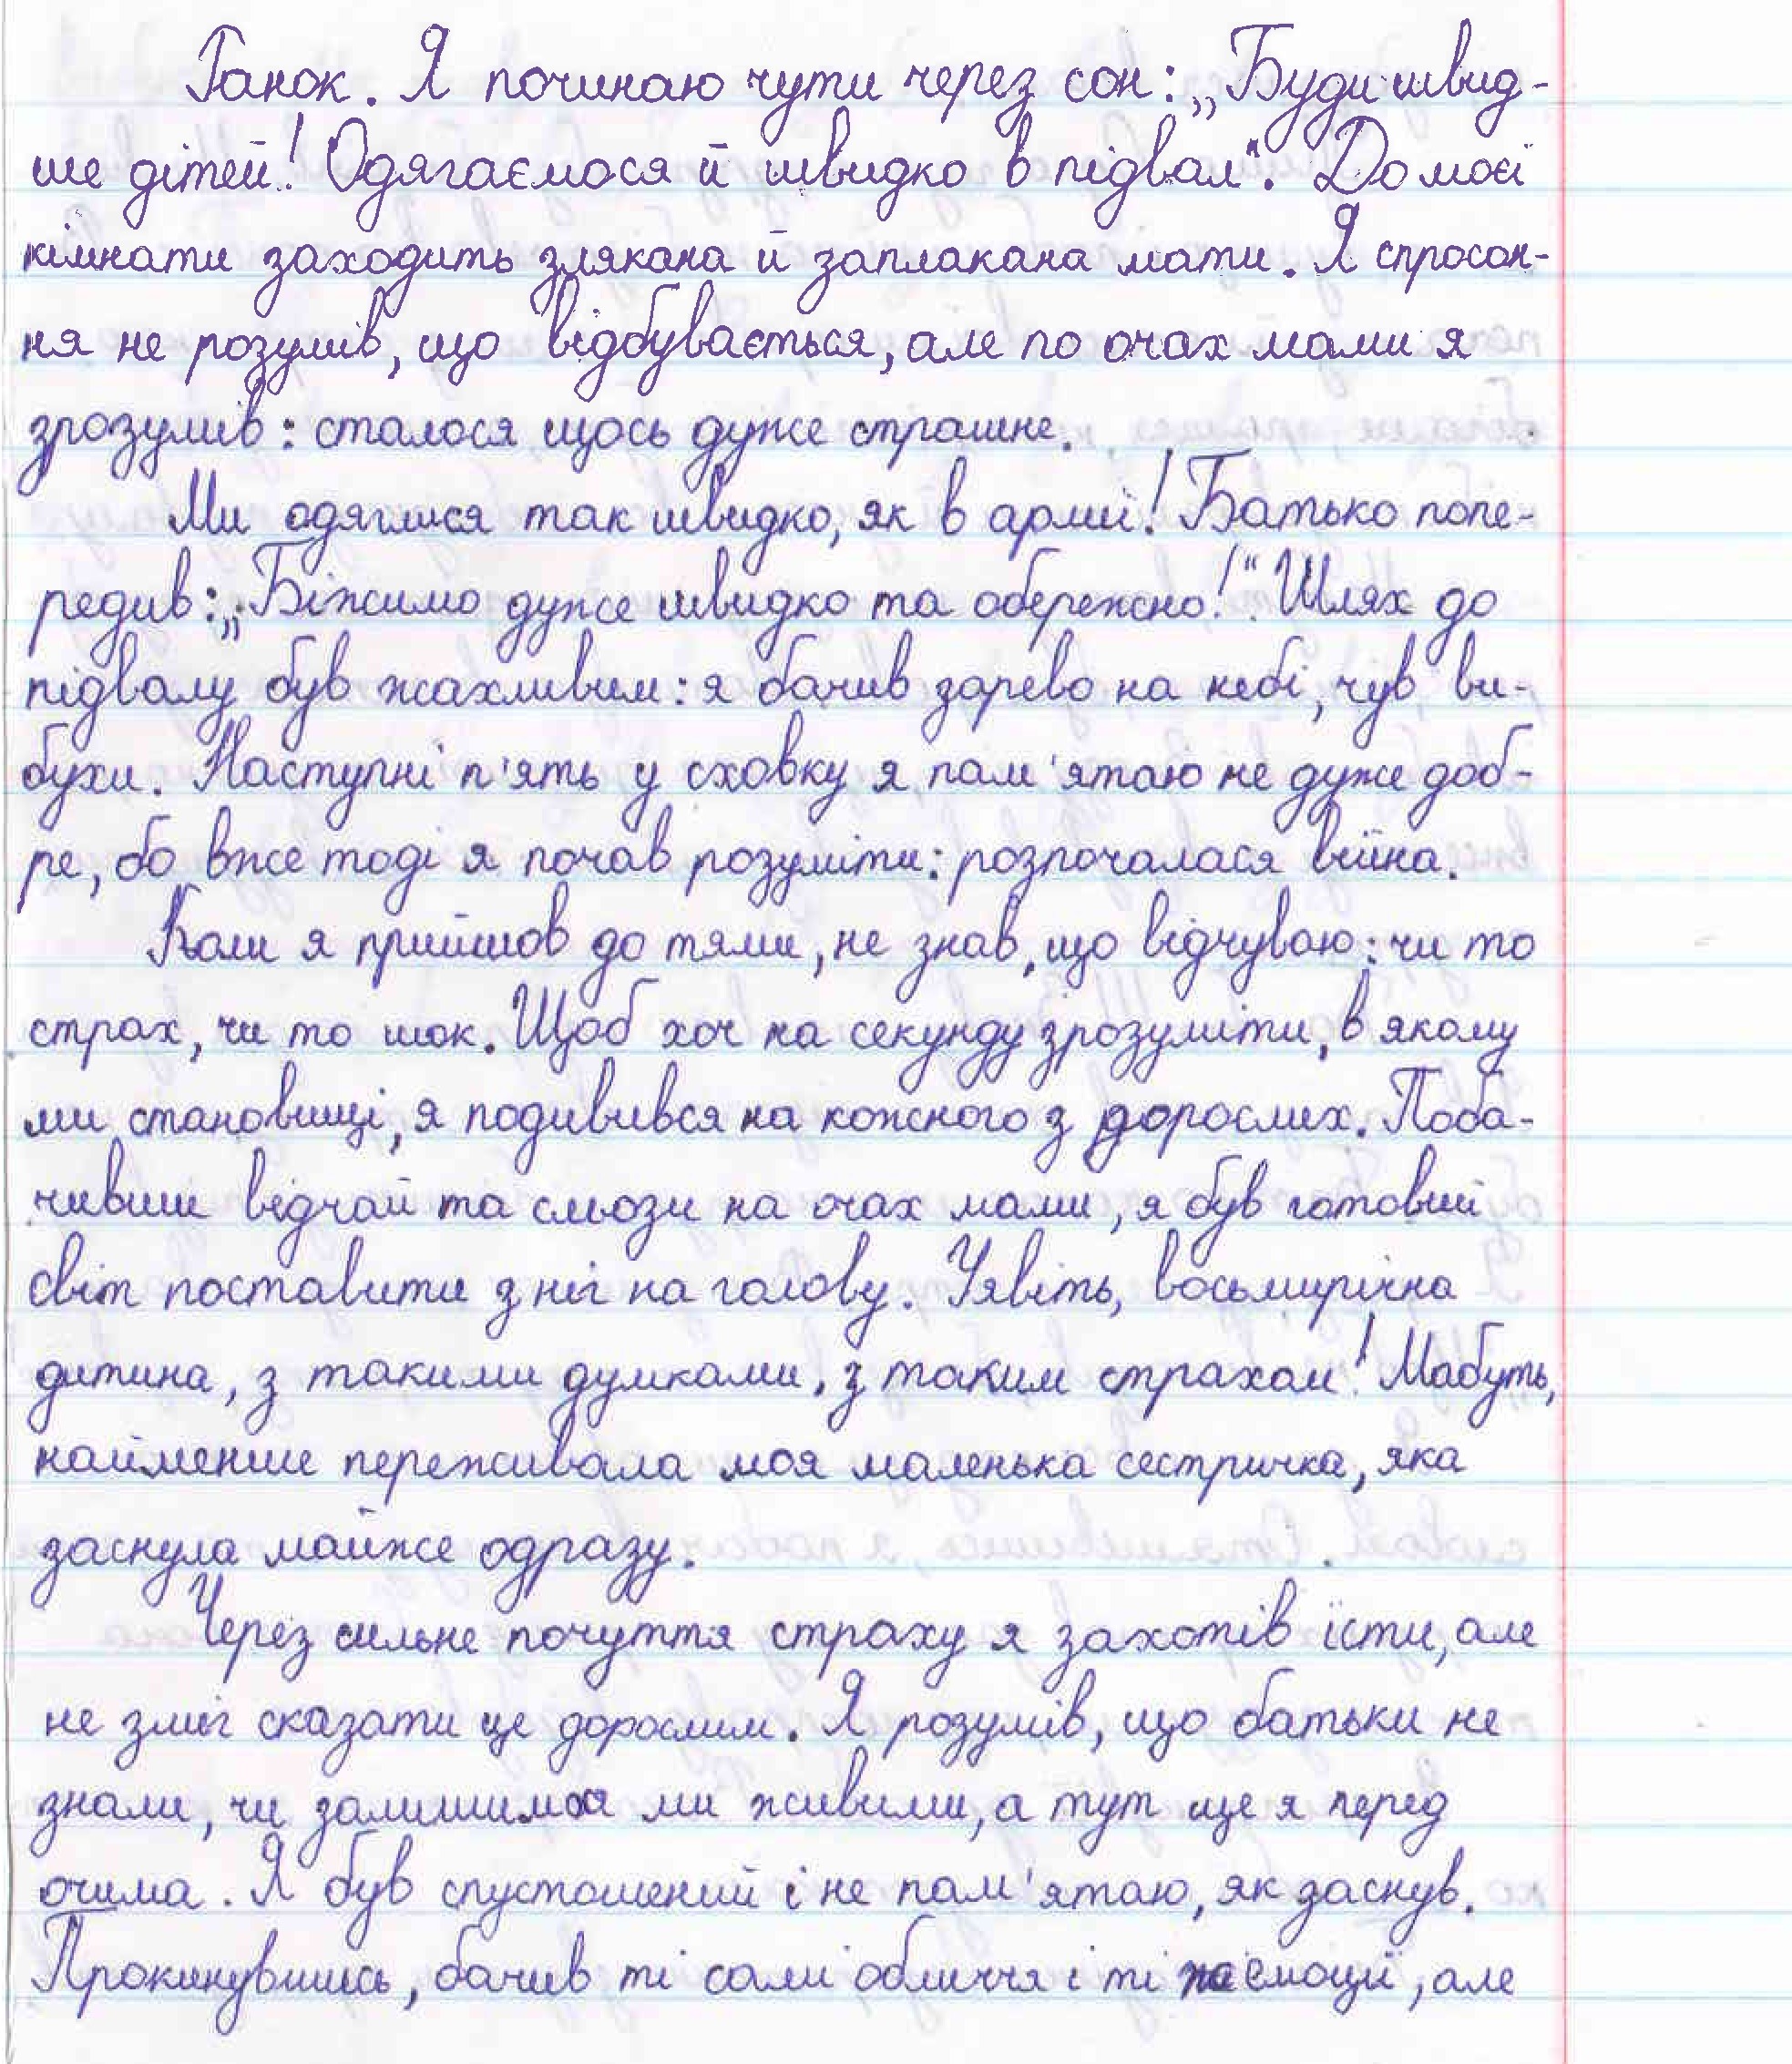 Ранок. Я починаю чути через сон: „Буди швид-
ше дітей! Одягаємося й швидко в підвал". До моєї
кімнати заходить злякана й заплакана мати. Я спросон-
ня не розумів, що відбувається, але по очах мами я
зрозумів: сталося щось дуже страшне.
Ми одяглися так швидко, як в армії! Батько попе-
редив: „Біжимо дуже швидко та обережно!". Шлях до
підвалу був жахливим: я бачив зарево на небі, чув ви-
бухи. Наступні п'ять у сховку я пам'ятаю не дуже доб-
ре, бо вже тоді я почав розуміти: розпочалася війна.
Коли я прийшов до тями, не знав, що відчуваю: чи то
страх, чи то шок. Щоб хоч на секунду зрозуміти, в якому
ми становищі, я подивився на кожного з дорослих. Поба-
чивши відчай та сльози на очах мами, я був готовий
світ поставити з ніг на голову. Уявіть, восьмирічна
дитина, з такими думками, з таким страхом! Мабуть,
найменше переживала моя маленька сестричка, яка
заснула майже одразу.
Через сильне почуття страху я захотів їсти, але
не зміг сказати це дорослим. Я розумів, що батьки не
знали, чи залишимося ми живими, а тут ще я перед
очима. Я був спустошений і не пам'ятаю, як заснув.
Прокинувшись, бачив ті самі обличчя і ті емоції, але